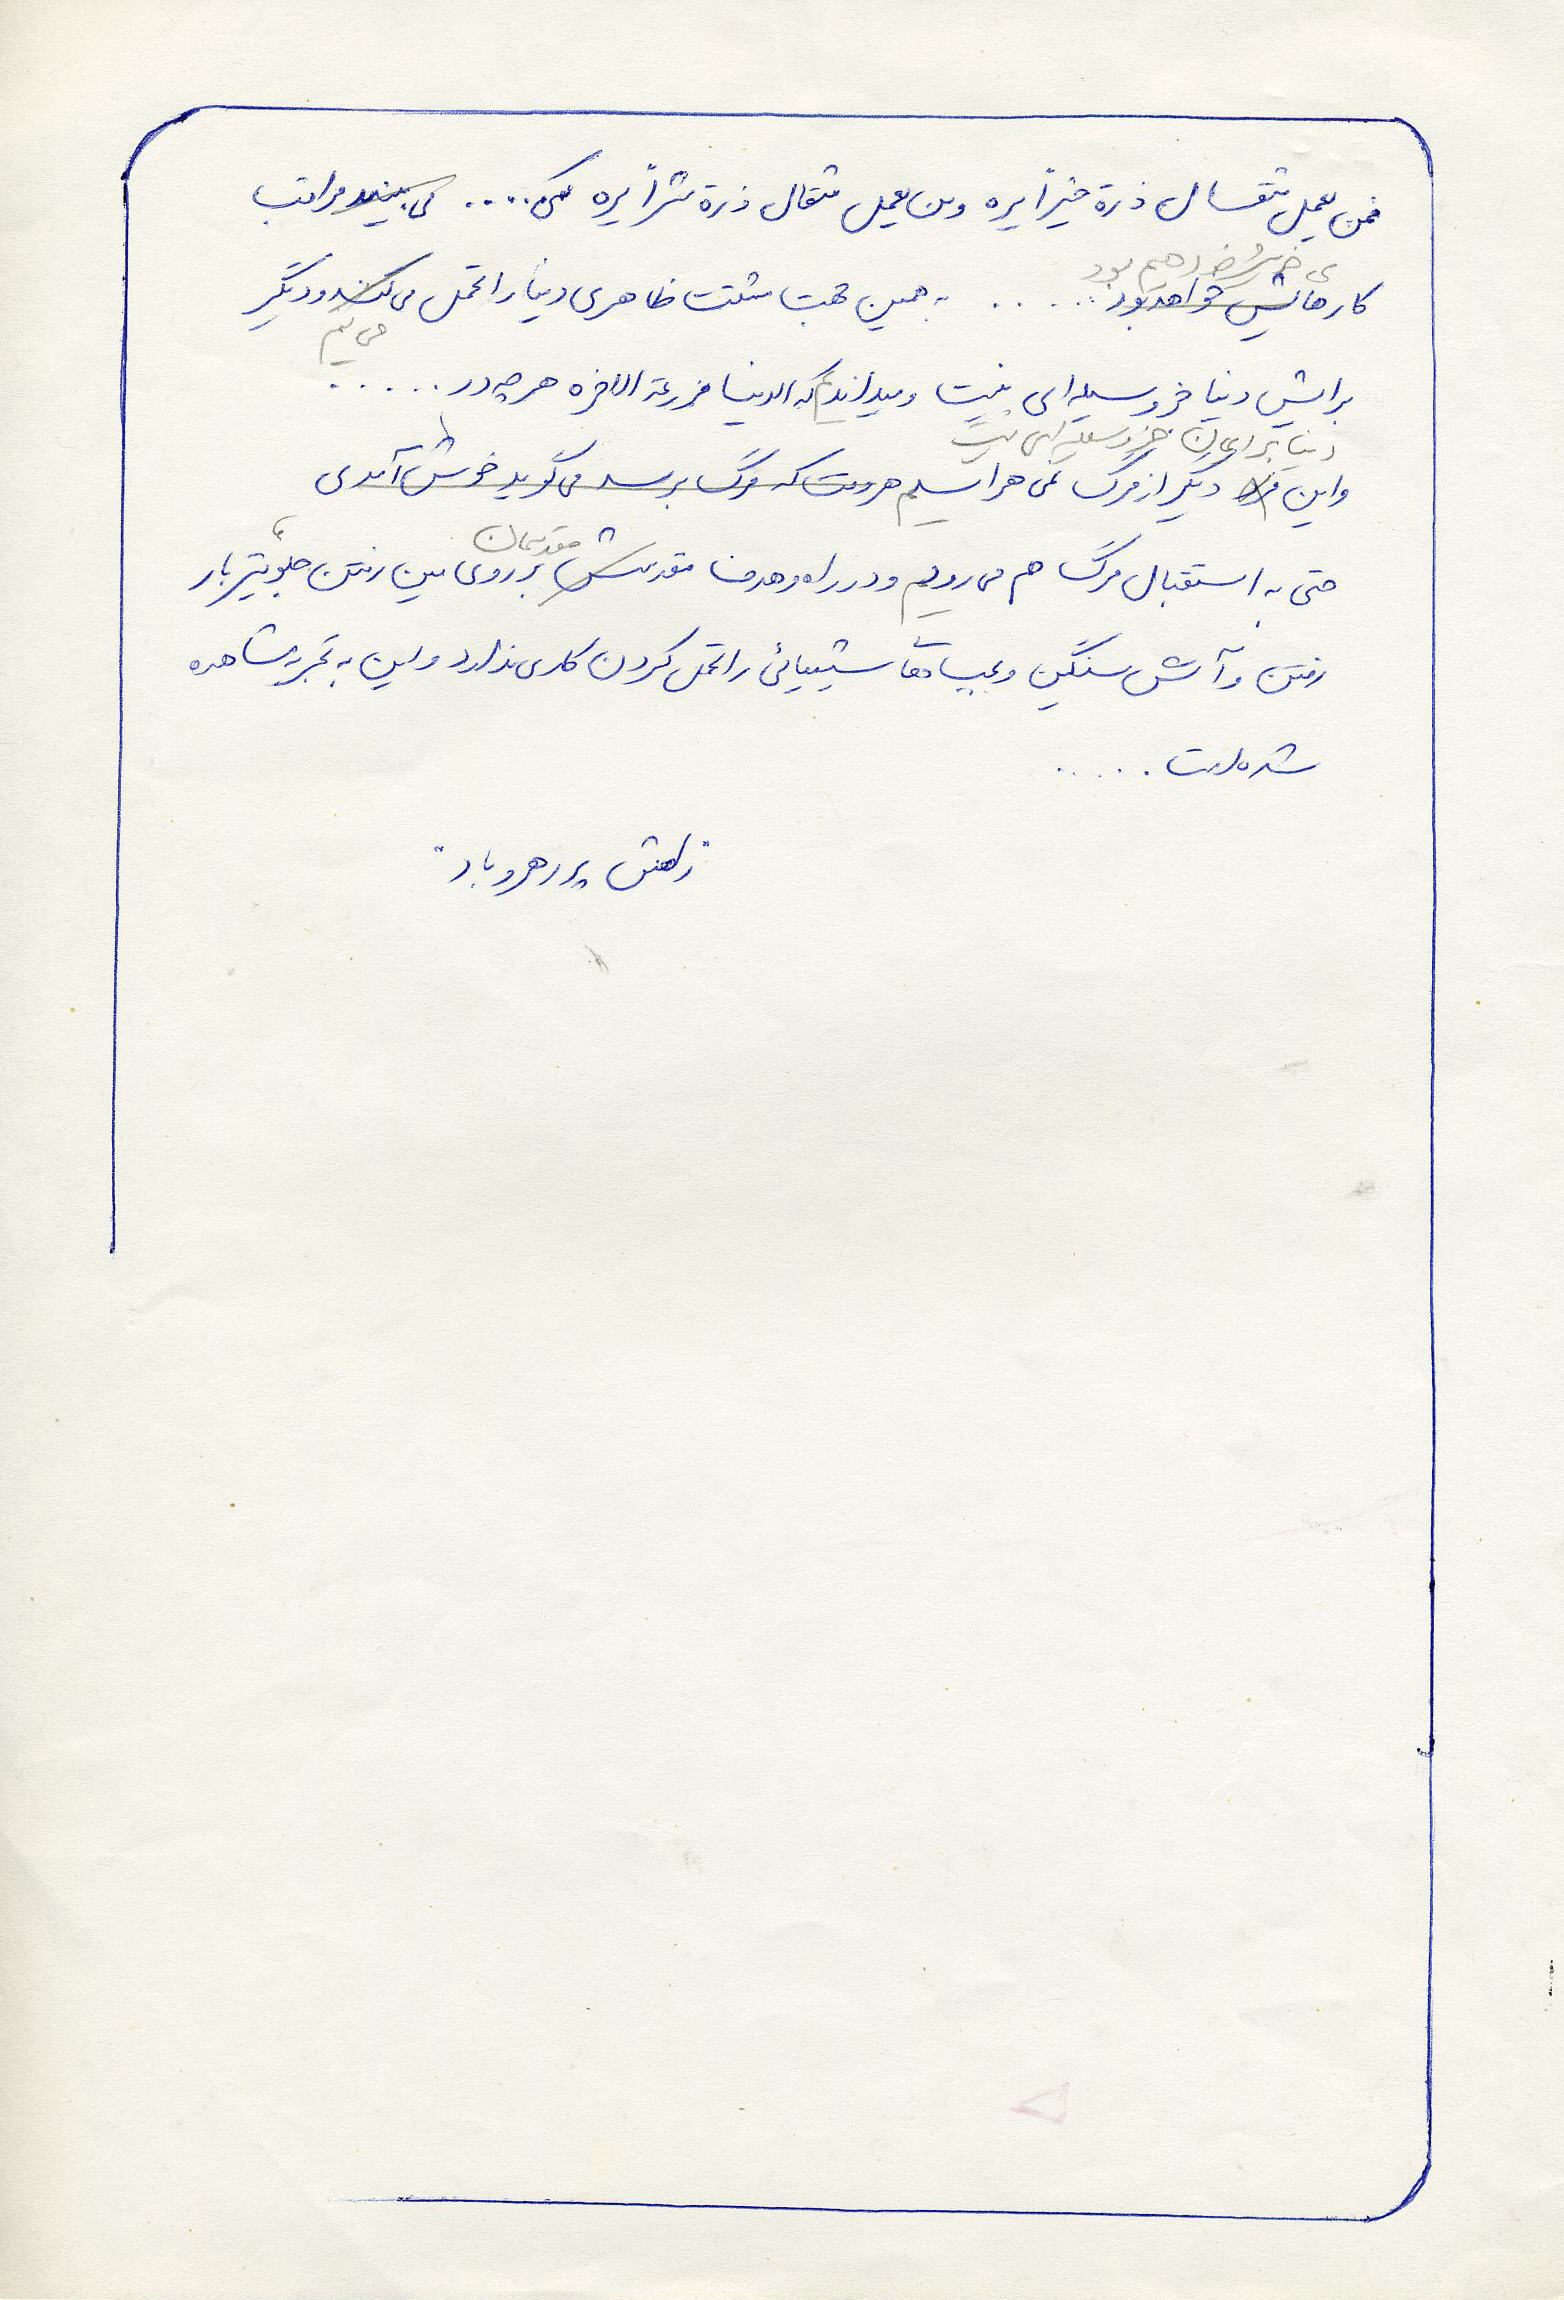 فمن یعمل مثقال ذرة خیراً یره و من یعمل مثقال ذرة شراً یره .... می‌بیند مراقب
ی خویش خواهیم بود
کارهایش خواهد بود ..... به همین جهت مشقت ظاهری دنیا را تحمل می‌کند و دیگر
می‌کنیم
برایش دنیا جز وسیله‌ای نیست و میدانیم که الدنیا مزرعة الاخره هر چه در .....
دنیا برای‌مان جز وسیله‌ای نیست
و این فرد دیگر از مرگ نمی‌هراسیم هر وقت که مرگ برسد می‌گوید خوش آمدی
مقدسمان
حتی به استقبال مرگ هم می‌رویم و در راه و هدف مقدسش بر روی مین رفتن جلو تیربار
رفتن و آتش سنگین و شیمیائی را تحمل کردن کاری ندارد و این به تجربه مشاهده
شده است .....
"راهش پر رهرو باد"